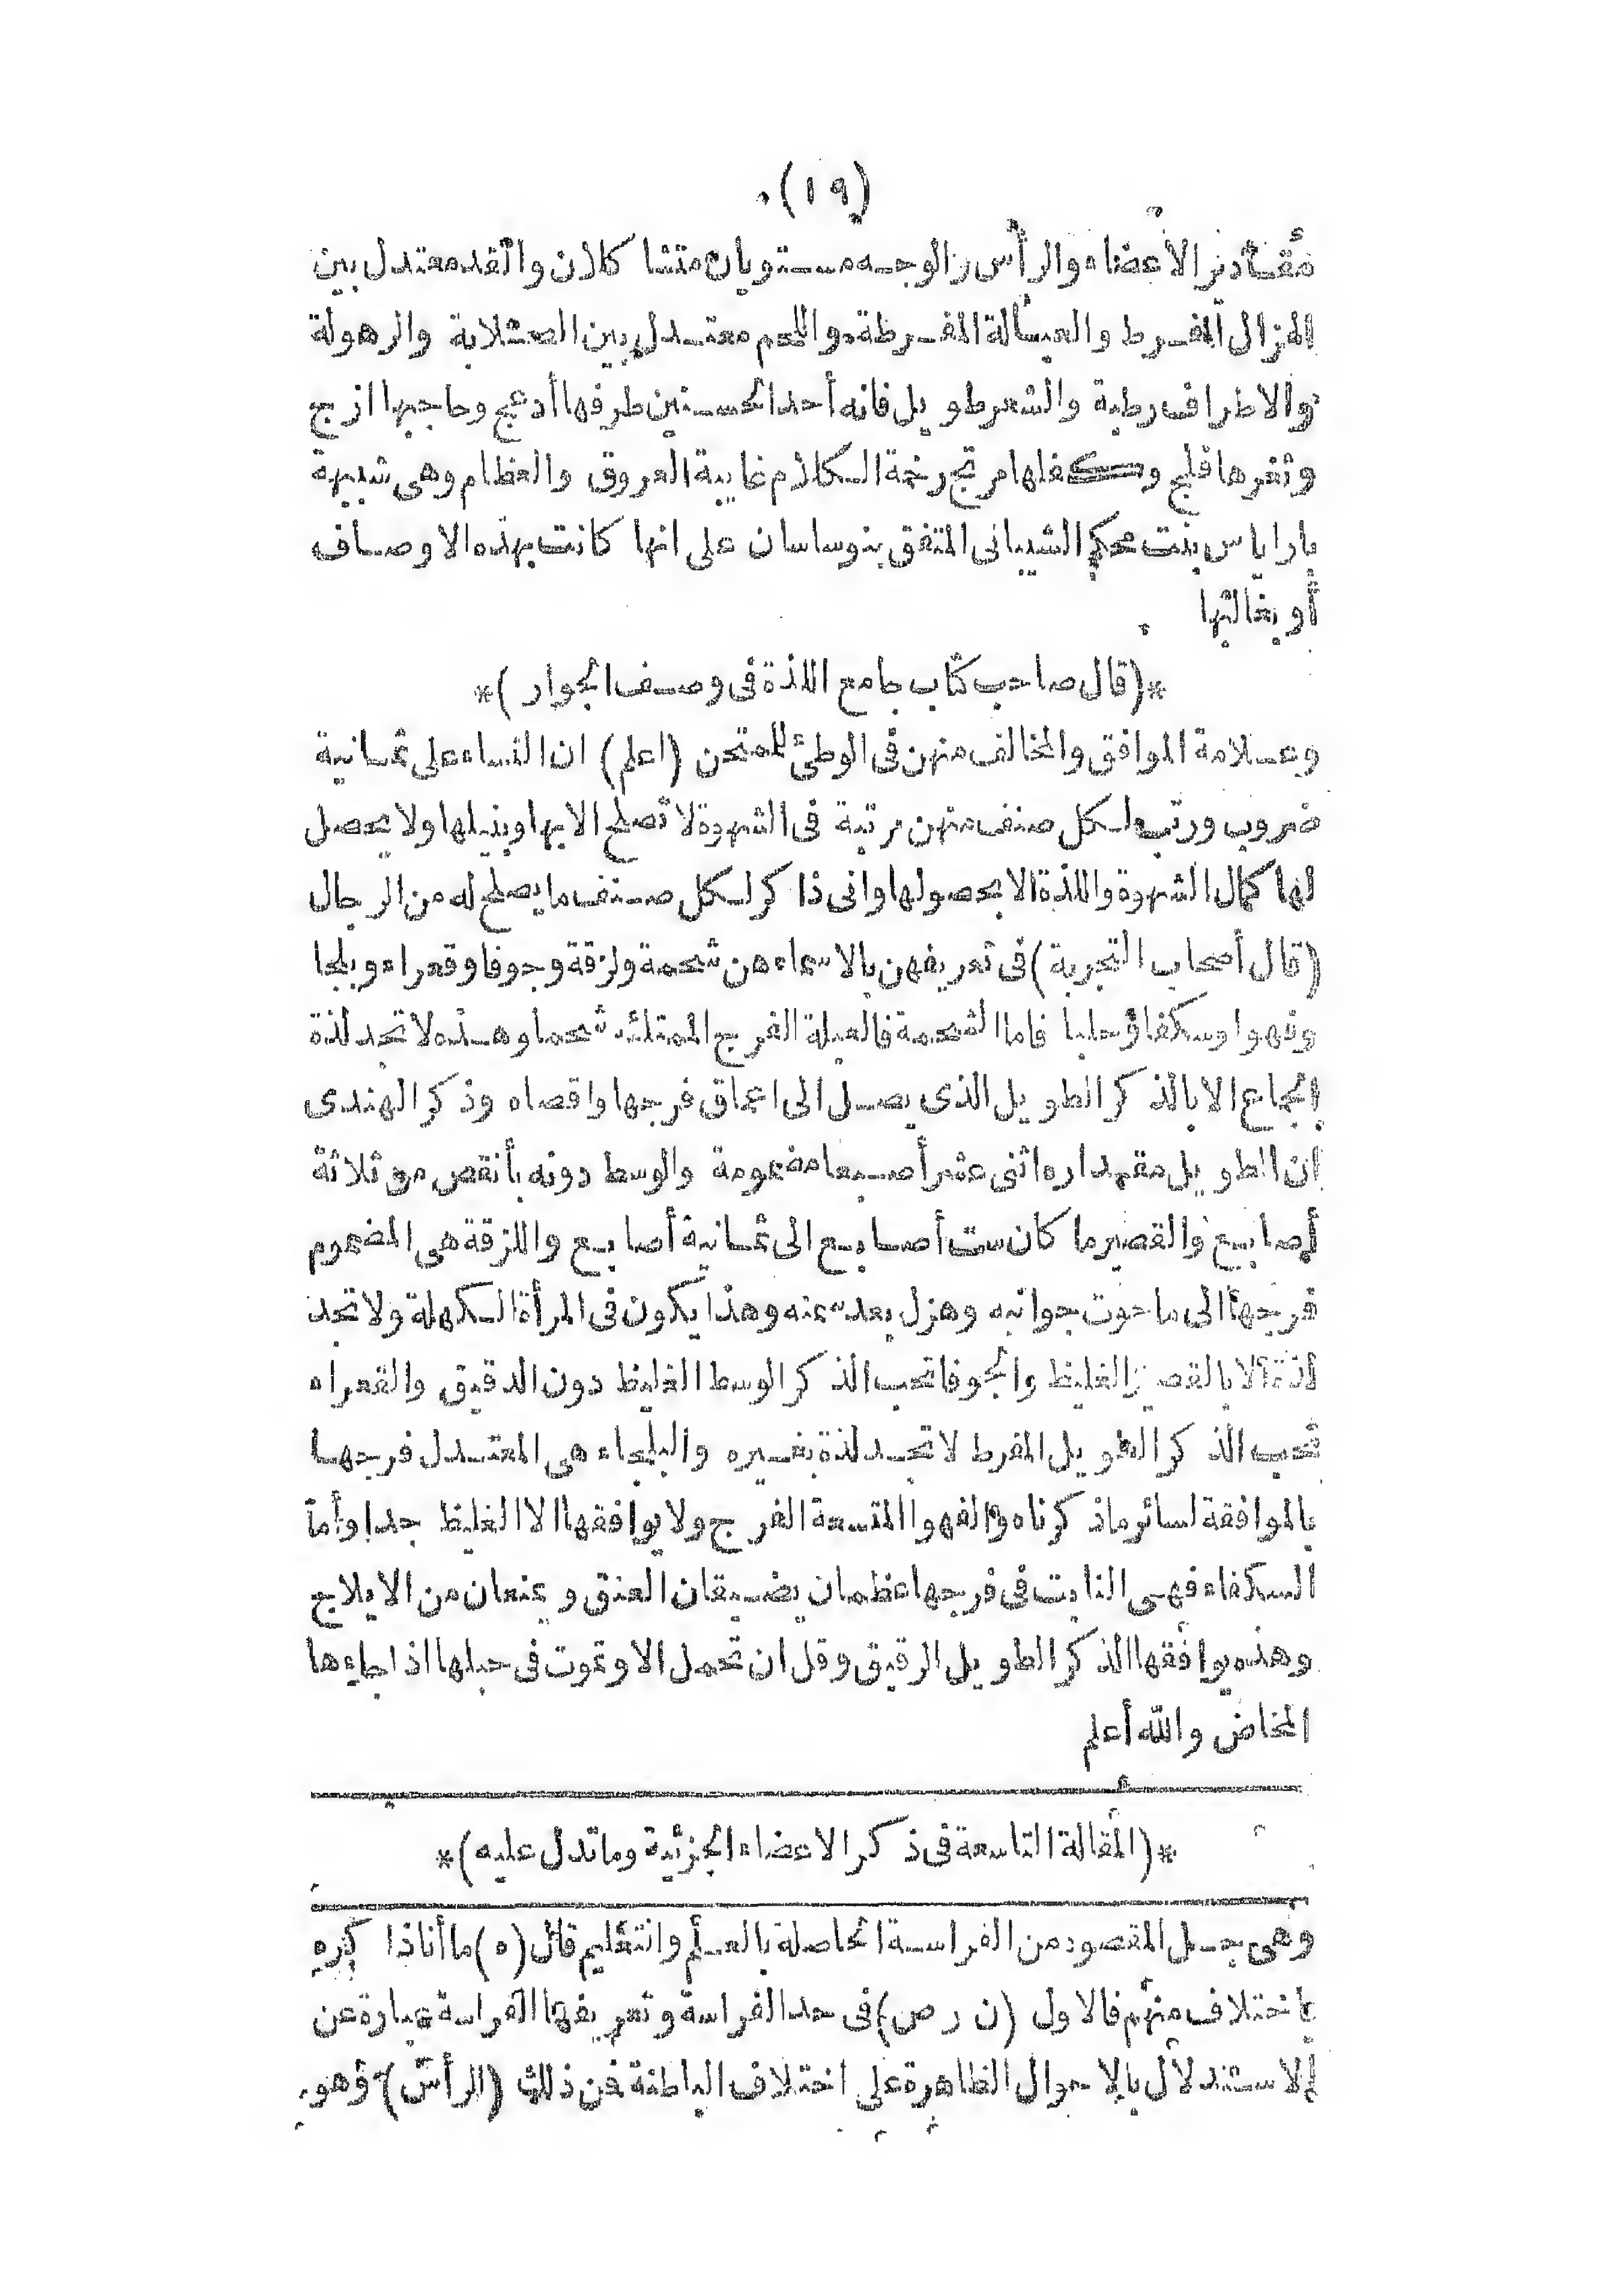 (١٩)
مقادير الاعضاء والرأس والوجه مستويان متشاكلان والقد معتدل بين
الهزال المفرط والعبالة المفرطة واللحم معتدل بين الصلابة والرهولة
والاطراف رطبة والشعر طويل فانه أحد الحسنين طرفها أدعج وحاجبها ازج
وثغرها فلج وكفلها مرتج رخمة الكلام غايبة العروق والعظام وهى شبيهة
بارا ياس بنت محكم الشيبانى المتفق بنوساسان على انها كانت بهذه الاوصاف
أو بغالبها
*(قال صاحب كتاب جامع اللذة فى وصف الجوار)*
وعلامة الموافق والمخالف منهن فى الوطئ للممتحن (اعلم) ان النساء على ثمانية
ضروب ورتب لكل صنف منهن مرتبة فى الشهوة لا تصلح الا بها وبنيلها ولا يحصل
لها كمال الشهوة واللذة الا بحصولها وانى ذاكر لكل صنف ما يصلح له من الرجال
(قال أصحاب التجربة) فى تعريفهن بالاسماء هن شحمة ولزقة وجوفا وقعراء وبلجا
وفهوا وسكفا فاما الشحمة فالعبلة الفرج الممتلئه شحما وهذه لا تجد لذة
الجماع الا بالذكر الطويل الذى يصل الى اعماق فرجها واقصاه وذكر الهندى
ان الطويل مقداره اثنى عشر أصبعا مضمومة والوسط دونه بأنقص من ثلاثة
أصابيع والقصير ما كان ست أصابيع الى ثمانية أصابيع واللزقة هى المضموم
فرجها الى ما حوت جوانبه وهزل بعد سمنه وهذا يكون فى المرأة الكهلة ولا تجد
لذة الا بالقصير الغليظ والجوفا تحب الذكر الوسط الغليظ دون الدقيق والقعراء
تحب الذكر الطويل المفرط لا تجد لذة بغيره والبلجاء هى المعتدل فرجها
بالموافقة لسائر ماذكرناه والفهوا المتسعة الفرج ولا يوافقها الا الغليظ جدا وأما
السكفاء فهى النابت فى فرجها عظمان يضيقان العنق ويمنعان من الايلاج
وهذه يوافقها الذكر الطويل الرقيق وقل ان تحمل الا وتموت فى حبلها اذا جاءها
المخاض والله أعلم
*(المقالة التاسعة فى ذكر الاعضاء الجزئية وما تدل عليه)*
وهى جل المقصود من الفراسة الحاصلة بالعلم والتعليم قال (ه) ما أنا ذاكره
باختلاف منهم فالاول (ن ر ص) فى حد الفراسة وتعريفها الفراسة عبارة عن
الاستدلال بالاحوال الظاهرة على اختلاف الباطنة فمن ذلك (الرأس) وهو